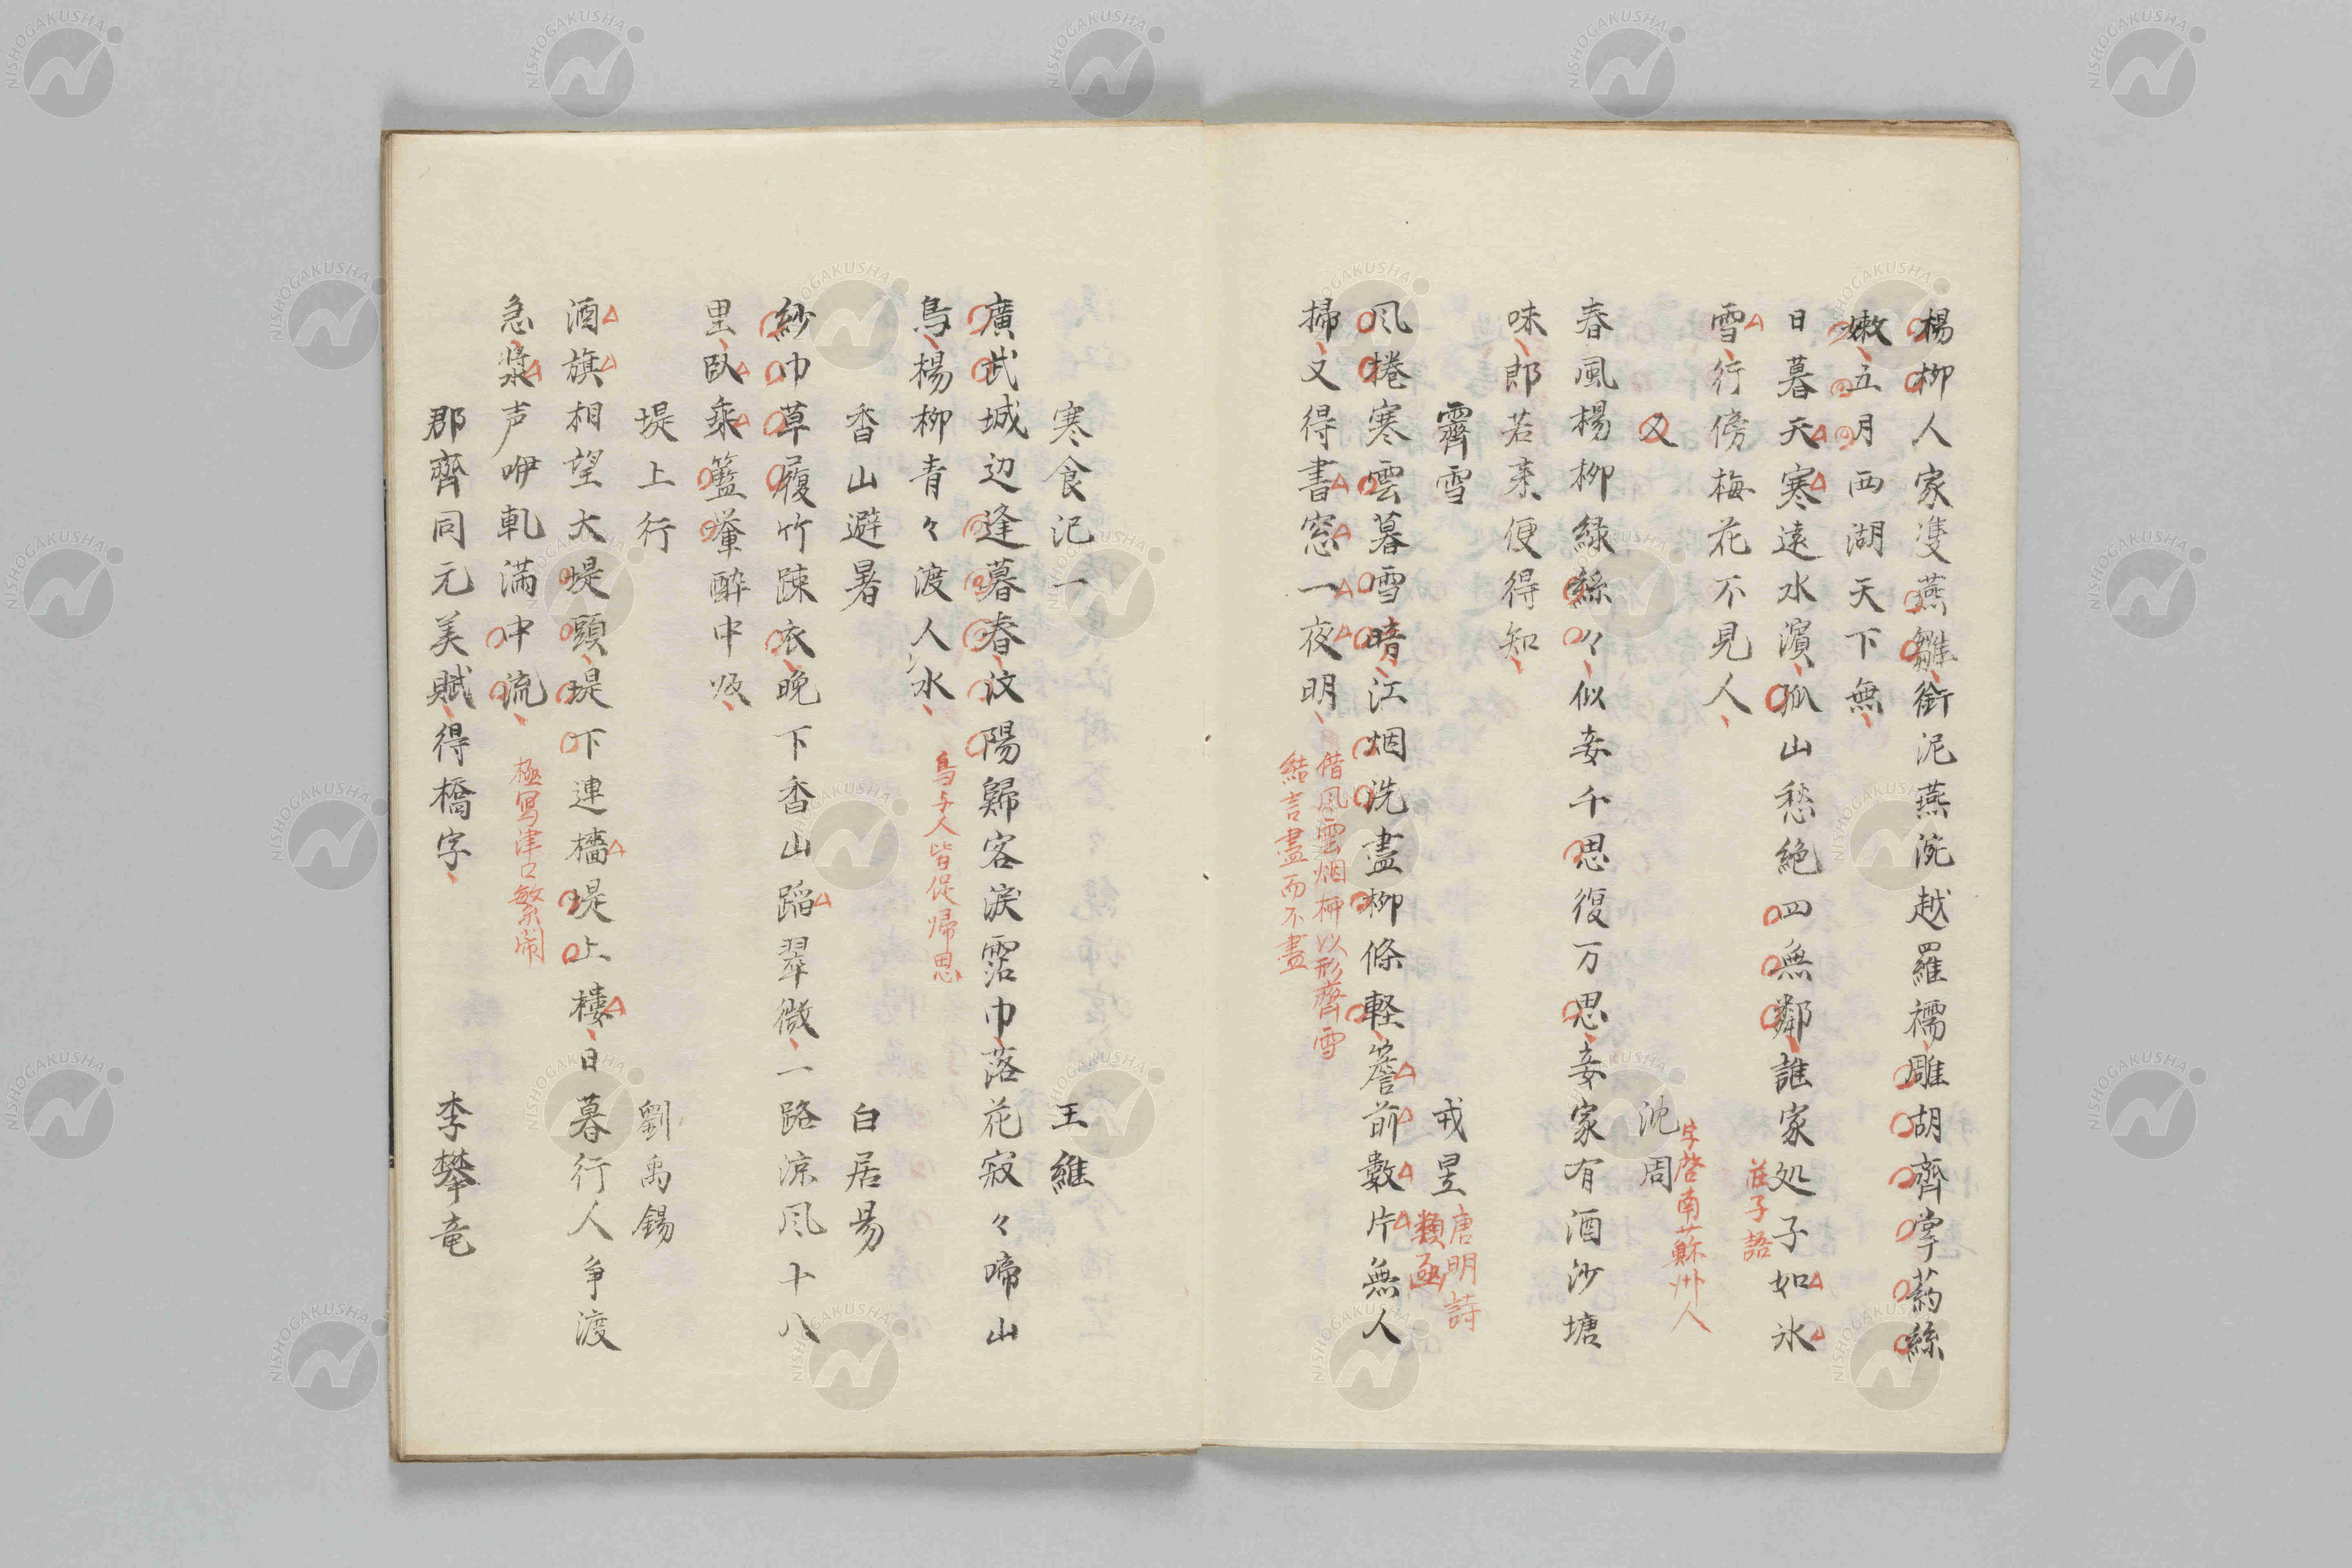 楊柳人家隻燕雛銜泥燕涴越羅襦雕胡齊掌葯絲
嫩五月西湖天下無
日暮天寒遠水濱孤山愁絶四無鄰誰家処子如氷
荘子語
雪行傍梅花不見人
又 沈周
字啓南蘇州人
春風楊柳緑絲々似妾千思復万思妾家有酒沙塘
味郎若来便得知
霽雪 戎昱
唐明詩
類函
風捲寒雲暮雪晴江烟洗盡柳條軽簷前数片無人
掃又得書窓一夜明
借風雲烟柳以形霽雪
結言盡而不盡
寒食汜一 王維
廣武城辺逢暮春汶陽歸客涙霑巾落花寂々啼山
鳥楊柳青々渡人水
鳥与人皆促帰思
香山避暑 白居易
紗巾草履竹踈衣晩下香山蹈翠微一路涼風十八
里臥乗籃轝酔中皈
堤上行 劉禹錫
酒旗相望大堤頭堤下連檣堤上楼日暮行人争渡
急槳声咿軋満中流
極写津口繁閙
郡齊同元美賦得橋字 李攀竜
NISHOGAKUSHA